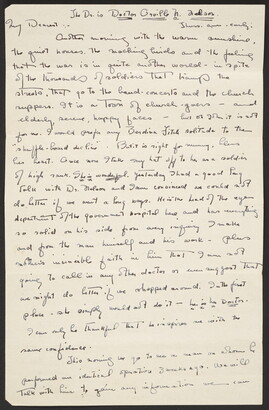 The Dr. is Doctor Orville N. Nelson
Thurs. aver - early.
My Dearest..
Another morning with the warm sunshine,
the quiet houses. The mocking birds and the feeling
that the war is in quite another world - in spite
of the thousands of soldiers that tramp the
streets, that go to the band-concerts and the church
suppers. It is a town of church-goers - and
elderly, serene, happy faces - but or John it is not
for me. I would prefer any solitude to them
"shuffle-board des lieu" But it's right for mummy, bless
her heart. Once more I take my hat off to her as a soldier
of high rank. She is wonderful. Yesterday I had a good long
talk with Dr. Nelson and I am convinced we could not
do better if we went a long ways. He is the head of the eye
department of the government hospital here and has everything
so solid on his side from every inquiry I make
and from the man himself and his work - plus
mother's invincible faith in him that I am not
going to call in any other doctor or even suggest that
we might do better if we shopped around. In the first
place - she simply would not do it - he is her Doctor.
I can only be thankful that he inspires me with the
same confidence.
This morning we go to see a man on whom he
performed an identical operation 3 weeks ago. We will
talk with him to gain any information we can